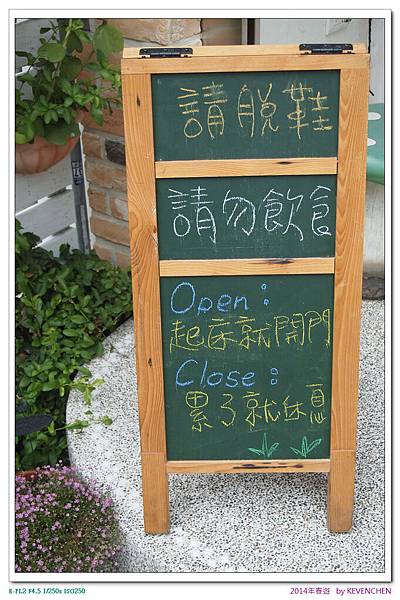 請脫鞋
請勿飲食
Open：
起床就開門
Close：
累了就休息
E-PL2 F4.5 1/250s ISO250
2014年春遊 by KEVENCHEN